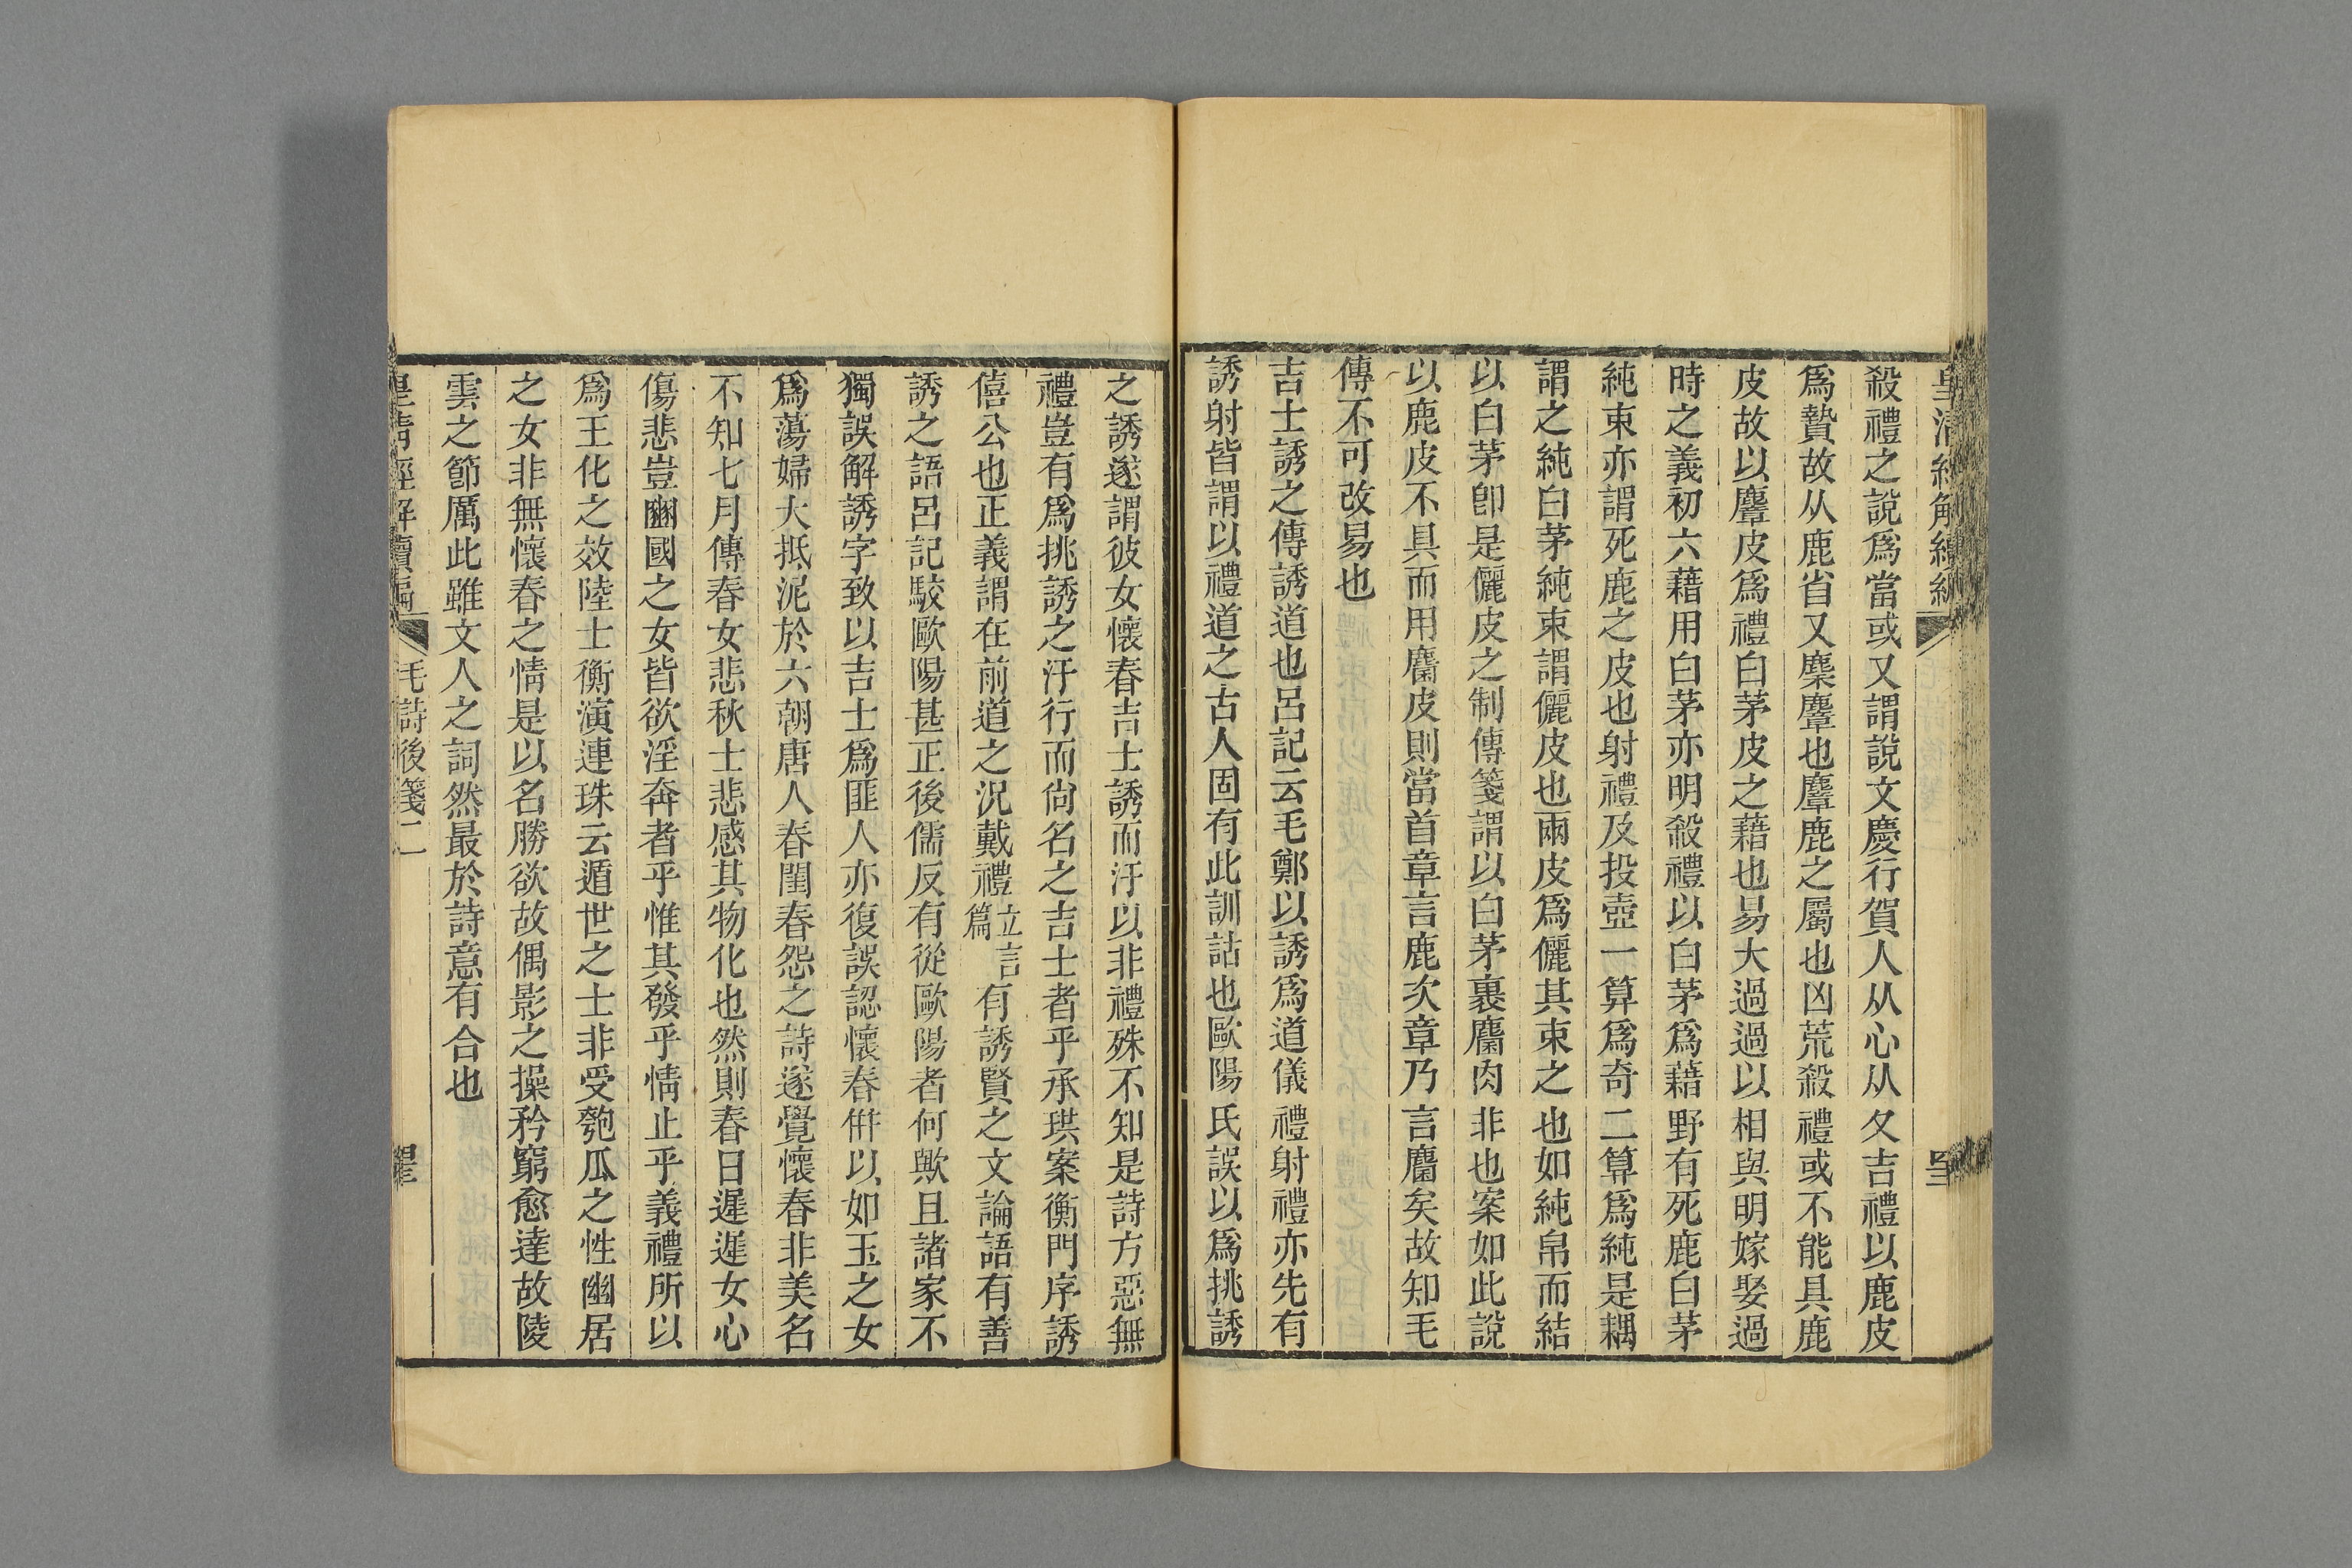 殺禮之說爲當或又謂說文慶行賀人从心从夊吉禮以鹿皮
爲贄故从鹿省又麇麞也麞鹿之屬也凶荒殺禮或不能具鹿
皮故以麞皮爲禮白茅皮之藉也易大過過以相與明嫁娶過
時之義初六藉用白茅亦明殺禮以白茅爲藉野有死鹿白茅
純束亦謂死鹿之皮也射禮及投壺一算爲奇二算爲純是耦
謂之純白茅純束謂儷皮也兩皮爲儷其束之也如純帛而結
以白茅卽是儷皮之制傳箋謂以白茅裹麕肉非也案如此說
以鹿皮不具而用麕皮則當首章言鹿次章乃言麕矣故知毛
傳不可改易也
吉士誘之傳誘道也呂記云毛鄭以誘爲道儀禮射禮亦先有
誘射皆謂以禮道之古人固有此訓詁也歐陽氏誤以爲挑誘
之誘遂謂彼女懷春吉士誘而汙以非禮殊不知是詩方惡無
禮豈有爲挑誘之汙行而尙名之吉士者乎承珙案衡門序誘
僖公也正義謂在前道之況戴禮立言篇有誘賢之文論語有善
誘之語呂記駮歐陽甚正後儒反有從歐陽者何歟且諸家不
獨誤解誘字致以吉士爲匪人亦復誤認懷春倂以如玉之女
爲蕩婦大抵泥於六朝唐人春閨春怨之詩遂覺懷春非美名
不知七月傳春女悲秋士悲感其物化也然則春日遲遲女心
傷悲豈豳國之女皆欲淫奔者乎惟其發乎情止乎義禮所以
爲王化之效陸士衡演連珠云遁世之士非受匏瓜之性幽居
之女非無懷春之情是以名勝欲故偶影之操矜窮愈達故陵
雲之節厲此雖文人之詞然最於詩意有合也
毛詩後箋二